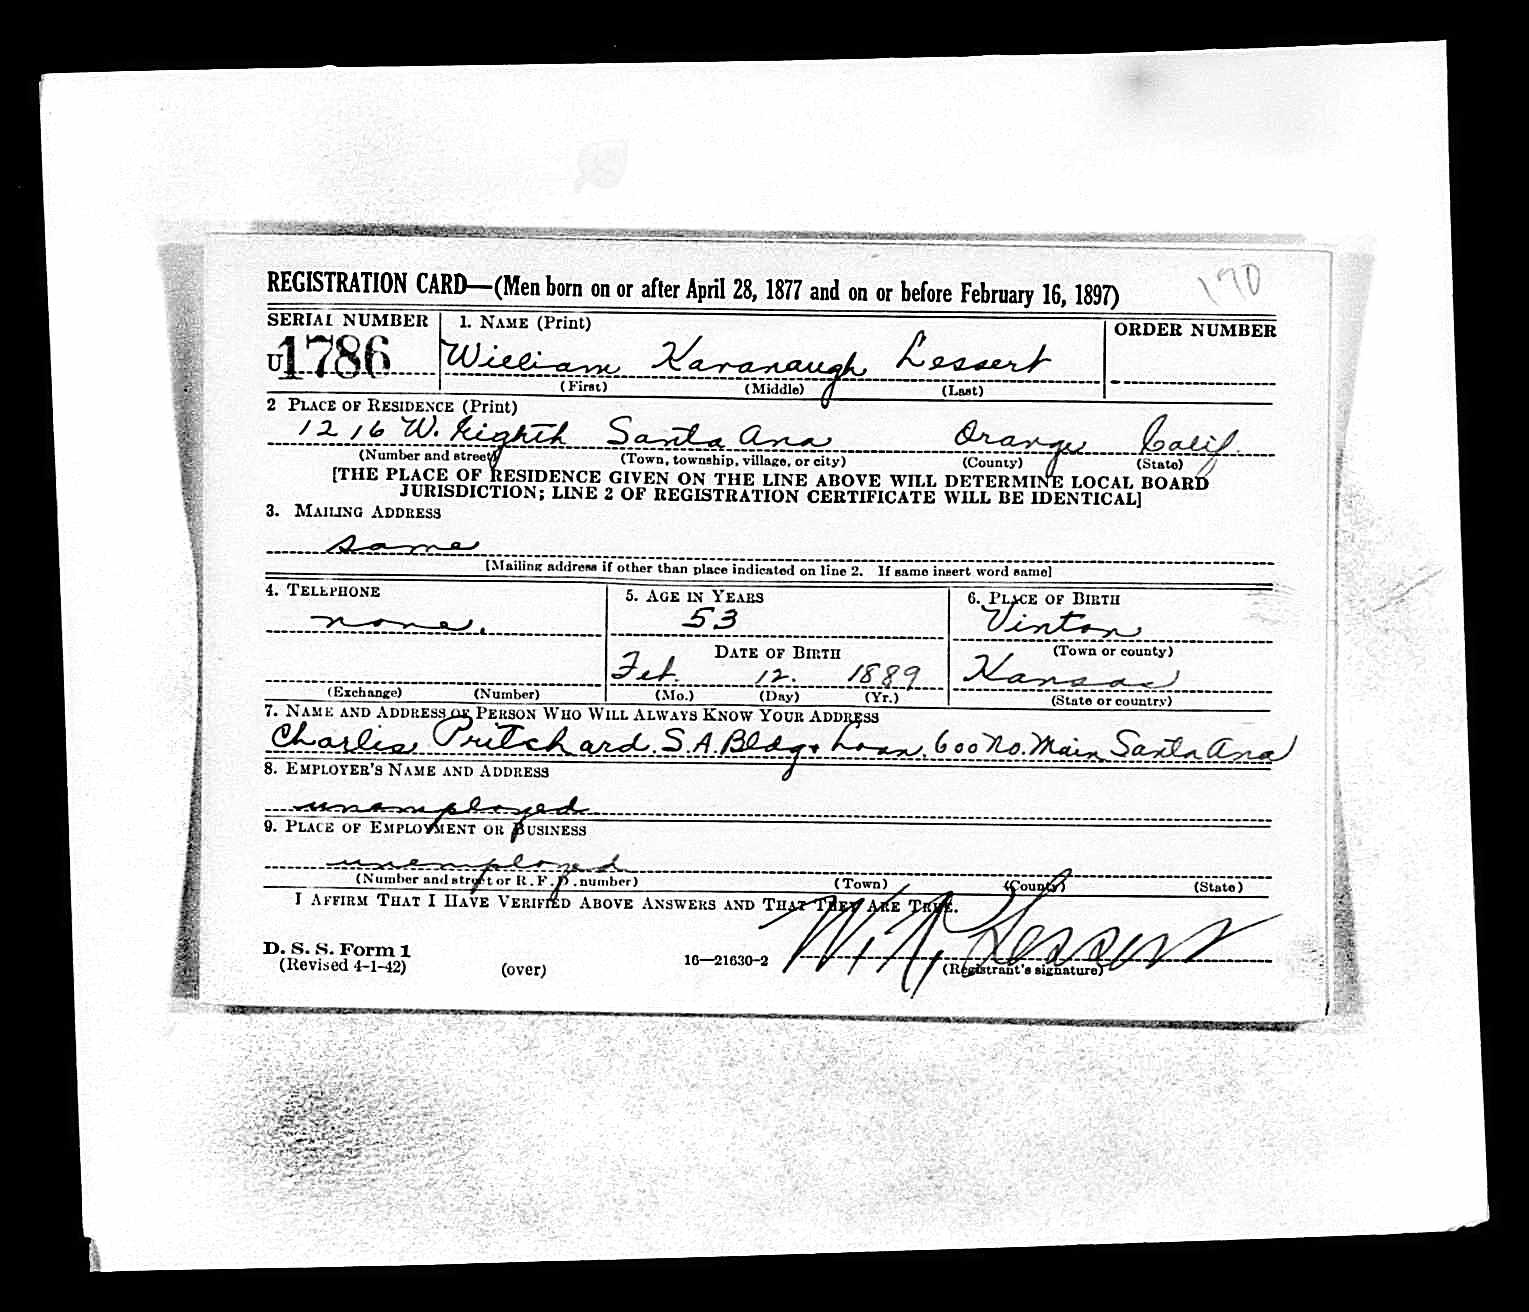 170
REGISTRATION CARD—(Men born on or after April 28, 1877 and on or before February 16, 1897)
SERIAL NUMBER 1. NAME (Print) ORDER NUMBER
U1786 William Kavanaugh Lessert
(First) (Middle) (Last)
2 PLACE OF RESIDENCE (Print)
1216 W. Eighth Santa Ana Orange Calif.
(Number and street) (Town, township, village, or city) (County) (State)
[THE PLACE OF RESIDENCE GIVEN ON THE LINE ABOVE WILL DETERMINE LOCAL BOARD
JURISDICTION; LINE 2 OF REGISTRATION CERTIFICATE WILL BE IDENTICAL]
3. MAILING ADDRESS
same
[Mailing address if other than place indicated on line 2. If same insert word same]
4. TELEPHONE 5. AGE IN YEARS 6. PLACE OF BIRTH
none. 53 Vinton
DATE OF BIRTH (Town or county)
Feb. 12. 1889 Kansas
(Exchange) (Number) (Mo.) (Day) (Yr.) (State or country)
7. NAME AND ADDRESS OF PERSON WHO WILL ALWAYS KNOW YOUR ADDRESS
Charlie Pritchard. S.A. Bldg & Loan. 600 No. Main Santa Ana
8. EMPLOYER'S NAME AND ADDRESS
unemployed
9. PLACE OF EMPLOYMENT OR BUSINESS
unemployed
(Number and street or R. F. D. number) (Town) (County) (State)
I AFFIRM THAT I HAVE VERIFIED ABOVE ANSWERS AND THAT THEY ARE TRUE.
W. K. Lessert
D. S. S. Form 1
(Revised 4-1-42) (over) 16—21630-2 (Registrant's signature)